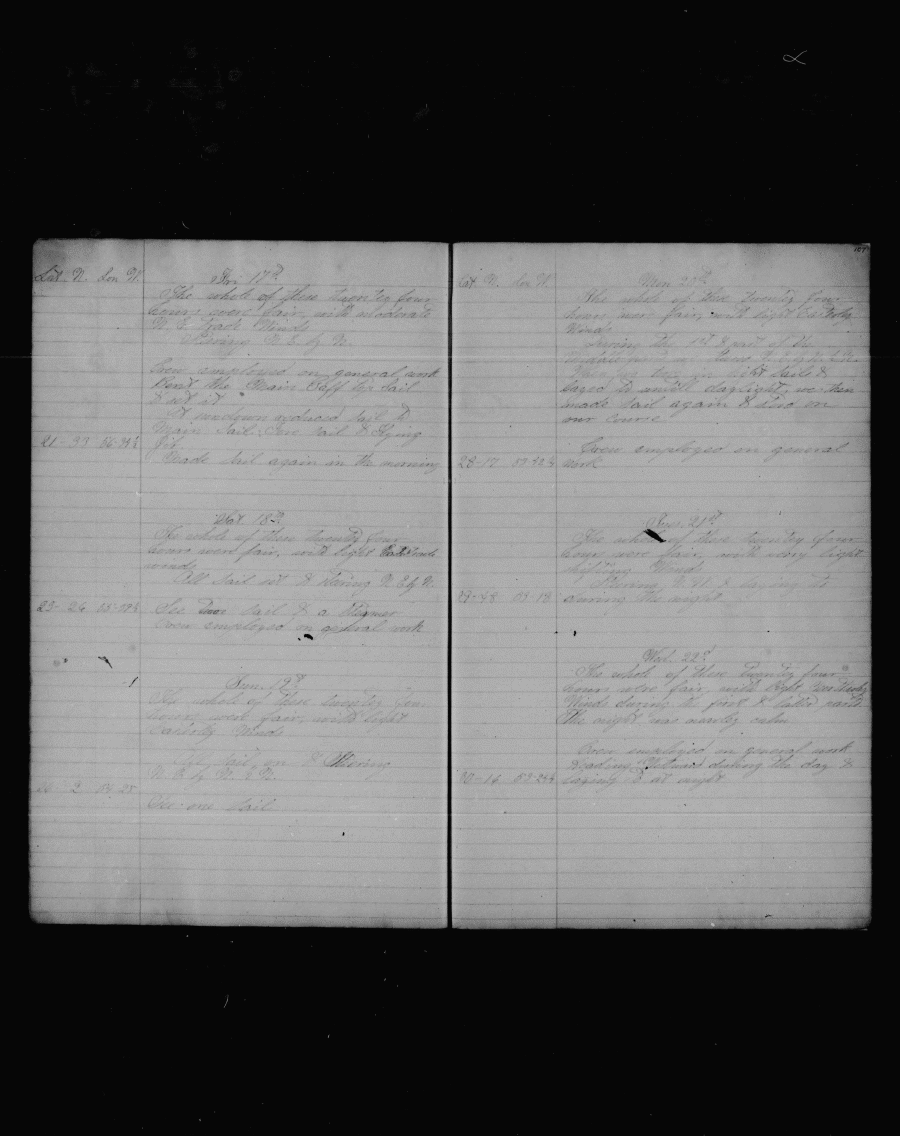 Lat. N. Lon W.
Fri. 17th
The whole of these twenty four
hours were fair, with moderate
N. E. trade Winds
Steering N. E. by N.
Crew employed on general work
Bent the Main Gaff top Sail
& set it
At sundown reduced sail to
Main Sail. Fore sail & Flying
21-33
Jib
Made sail again in the morning
Sat. 18th
The whole of these twenty four
hours were fair, with light
winds
All sail set & steering N. E. by N.
23-26
See two sail & a Steamer
Crew employed on general work
Sun. 19th
The whole of these twenty four
hours were fair, with light
Easterly Winds
All sail on & Steering
N. E. by N. & N.
See one sail
107
Lat. N. Lon W.
Mon 20th
The whole of these twenty four
hours were fair, with light Easterly
Winds
During the 1st part of the
light sails &
layed to until daylight, we then
made sail again & stood on
our course
Crew employed on general
28-17
work
Tues. 21st
The whole of these twenty four
hours were fair, with very light
shifting Winds
Steering N. E. & laying to
29-48
during the night
Wed. 22d
The whole of these twenty four
hours were fair, with light Westerly
Winds during the first & latter parts
The night was nearly calm
Crew employed on general work
during the day &
laying to at night